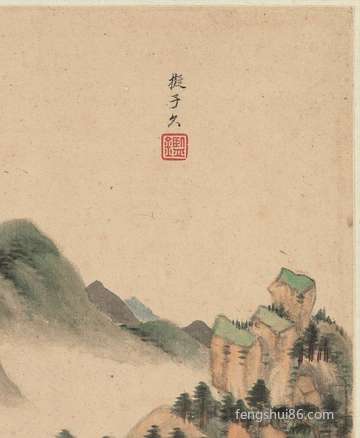 擬子久
鑑
fengshui86.com